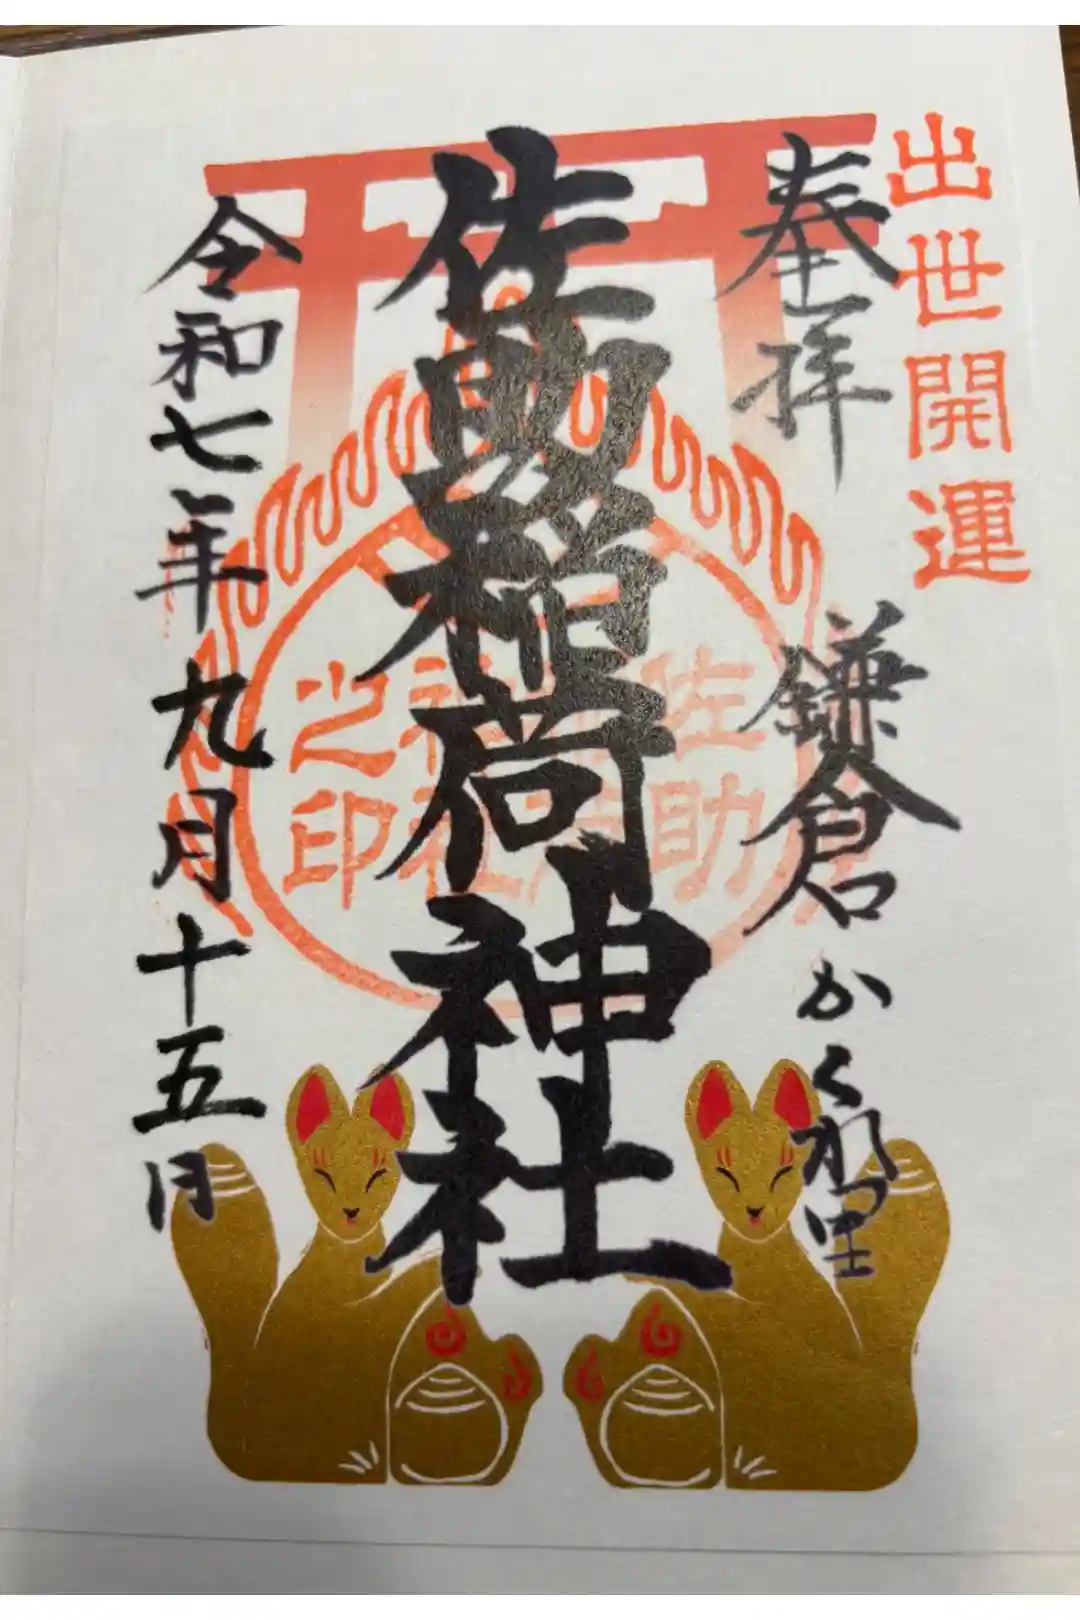 出世開運
奉拝
鎌倉かくれ里
佐助稲荷神社
佐助
之印
令和七年九月十五日